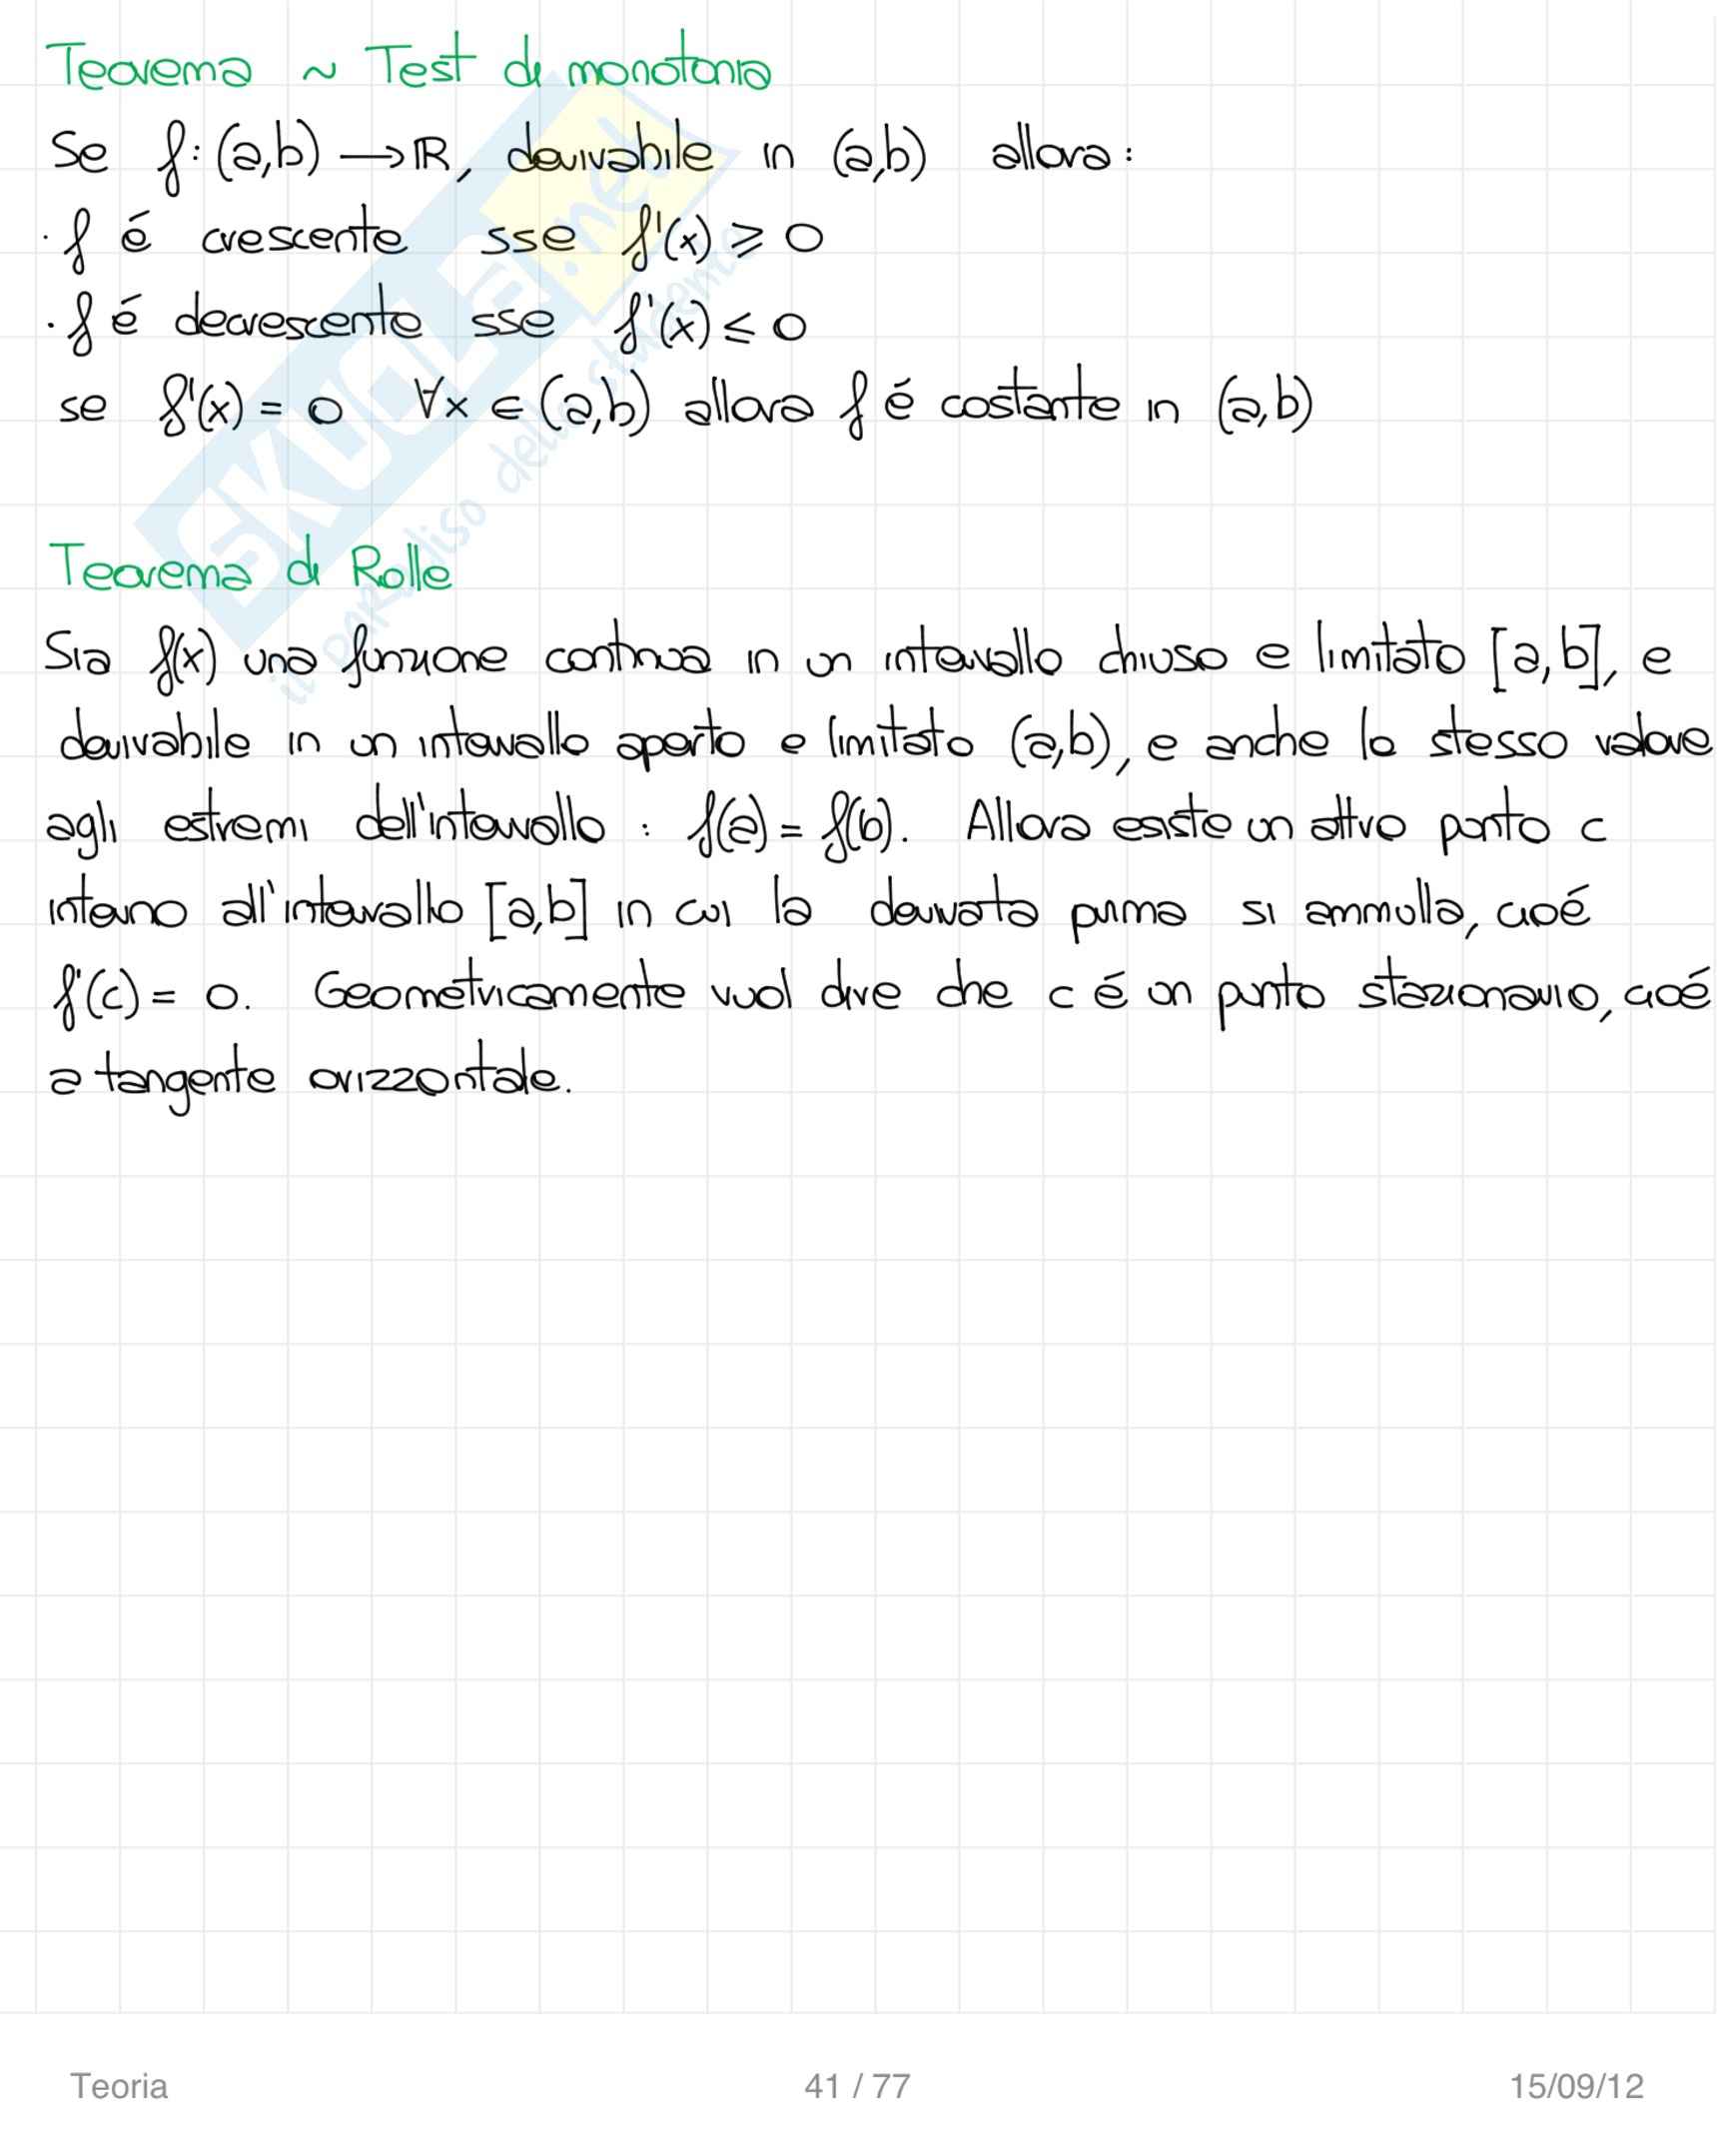 Teorema ~ Test di monotonia
Se f: (a,b) → ℝ, derivabile in (a,b) allora:
· f é crescente sse f'(x) ⩾ 0
· f é decrescente sse f'(x) ≤ 0
se f'(x) = 0 ∀x ∈ (a,b) allora f é costante in (a,b)
SKUOLA.net
il paradiso dello studente
Teorema di Rolle
Sia f(x) una funzione continua in un intervallo chiuso e limitato [a,b], e
derivabile in un intervallo aperto e limitato (a,b), e anche lo stesso valore
agli estremi dell'intervallo : f(a) = f(b). Allora esiste un altro punto c
interno all'intervallo [a,b] in cui la derivata prima si ammulla, cioé
f'(c) = 0. Geometricamente vuol dire che c é un punto stazionario, cioé
a tangente orizzontale.
Teoria 41 / 77 15/09/12